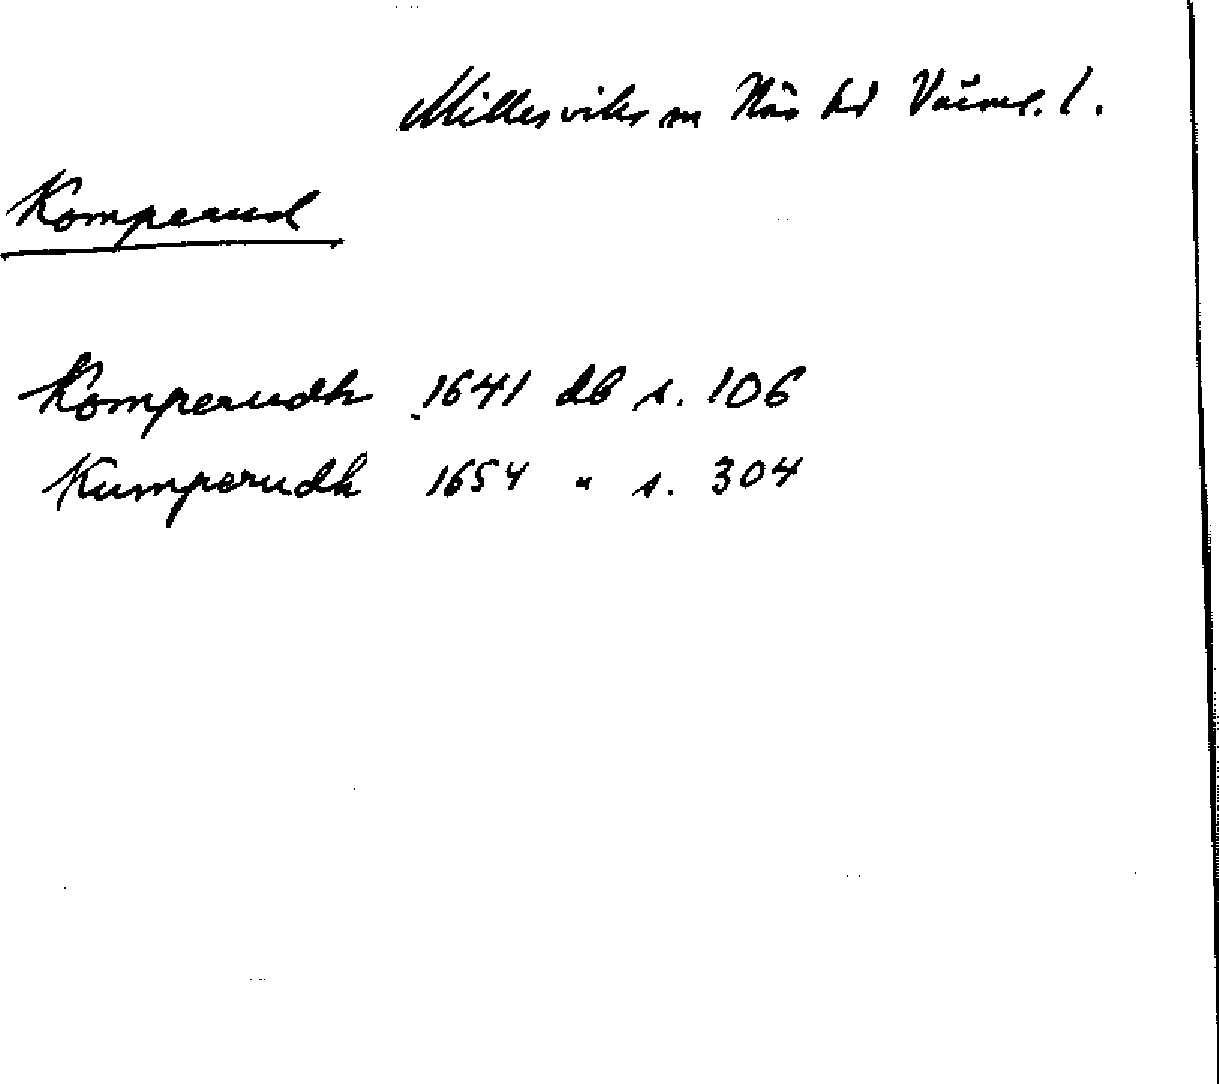 Millesviks sn Näs hd Värml. l.
Komperud
Komperudh 1641 db s. 106
Kumperudh 1654 " s. 304